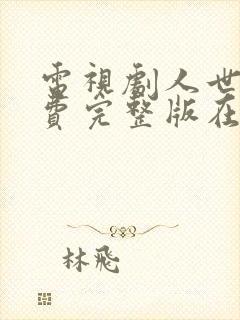 電視劇人世
費完整版在
林飛